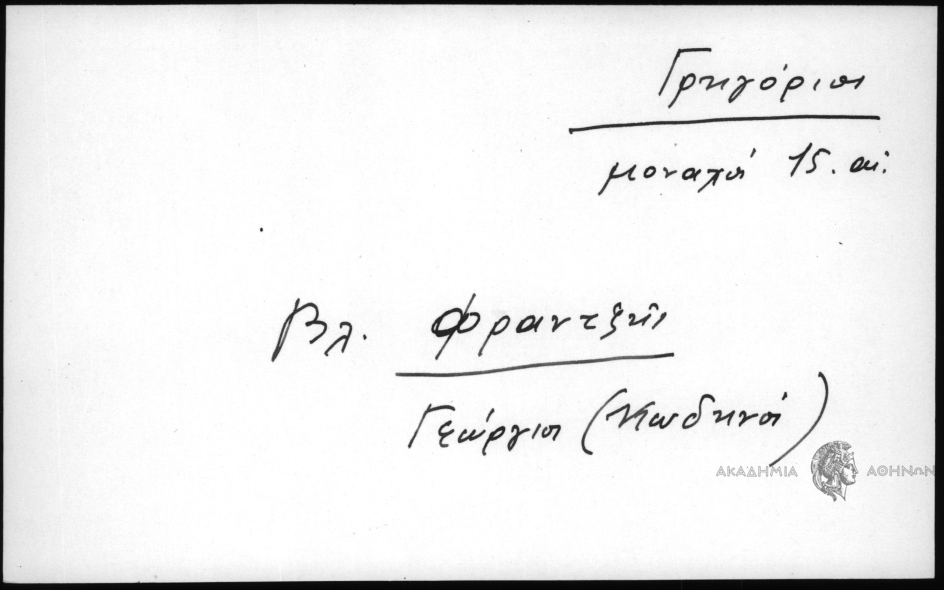 Γρηγόριος
μοναχός 15. αι.
Βλ. Φραντζής
Γεώργιος (Κωδικνός)
ΑΚΑΔΗΜΙΑ ΑΘΗΝΩΝ